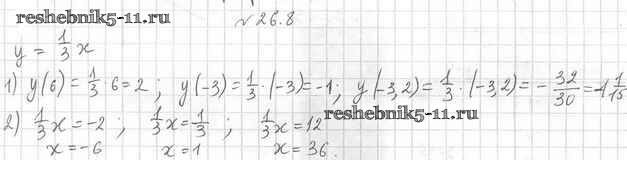 reshebnik5-11.ru
№ 26.8
y = 1/3 x
1) y(6) = 1/3 · 6 = 2; y(-3) = 1/3 · (-3) = -1; y(-3,2) = 1/3 · (-3,2) = - 32/30 = -1 1/15
reshebnik5-11.ru
2) 1/3 x = -2; 1/3 x = 1/3; 1/3 x = 12
x = -6 x = 1 x = 36.